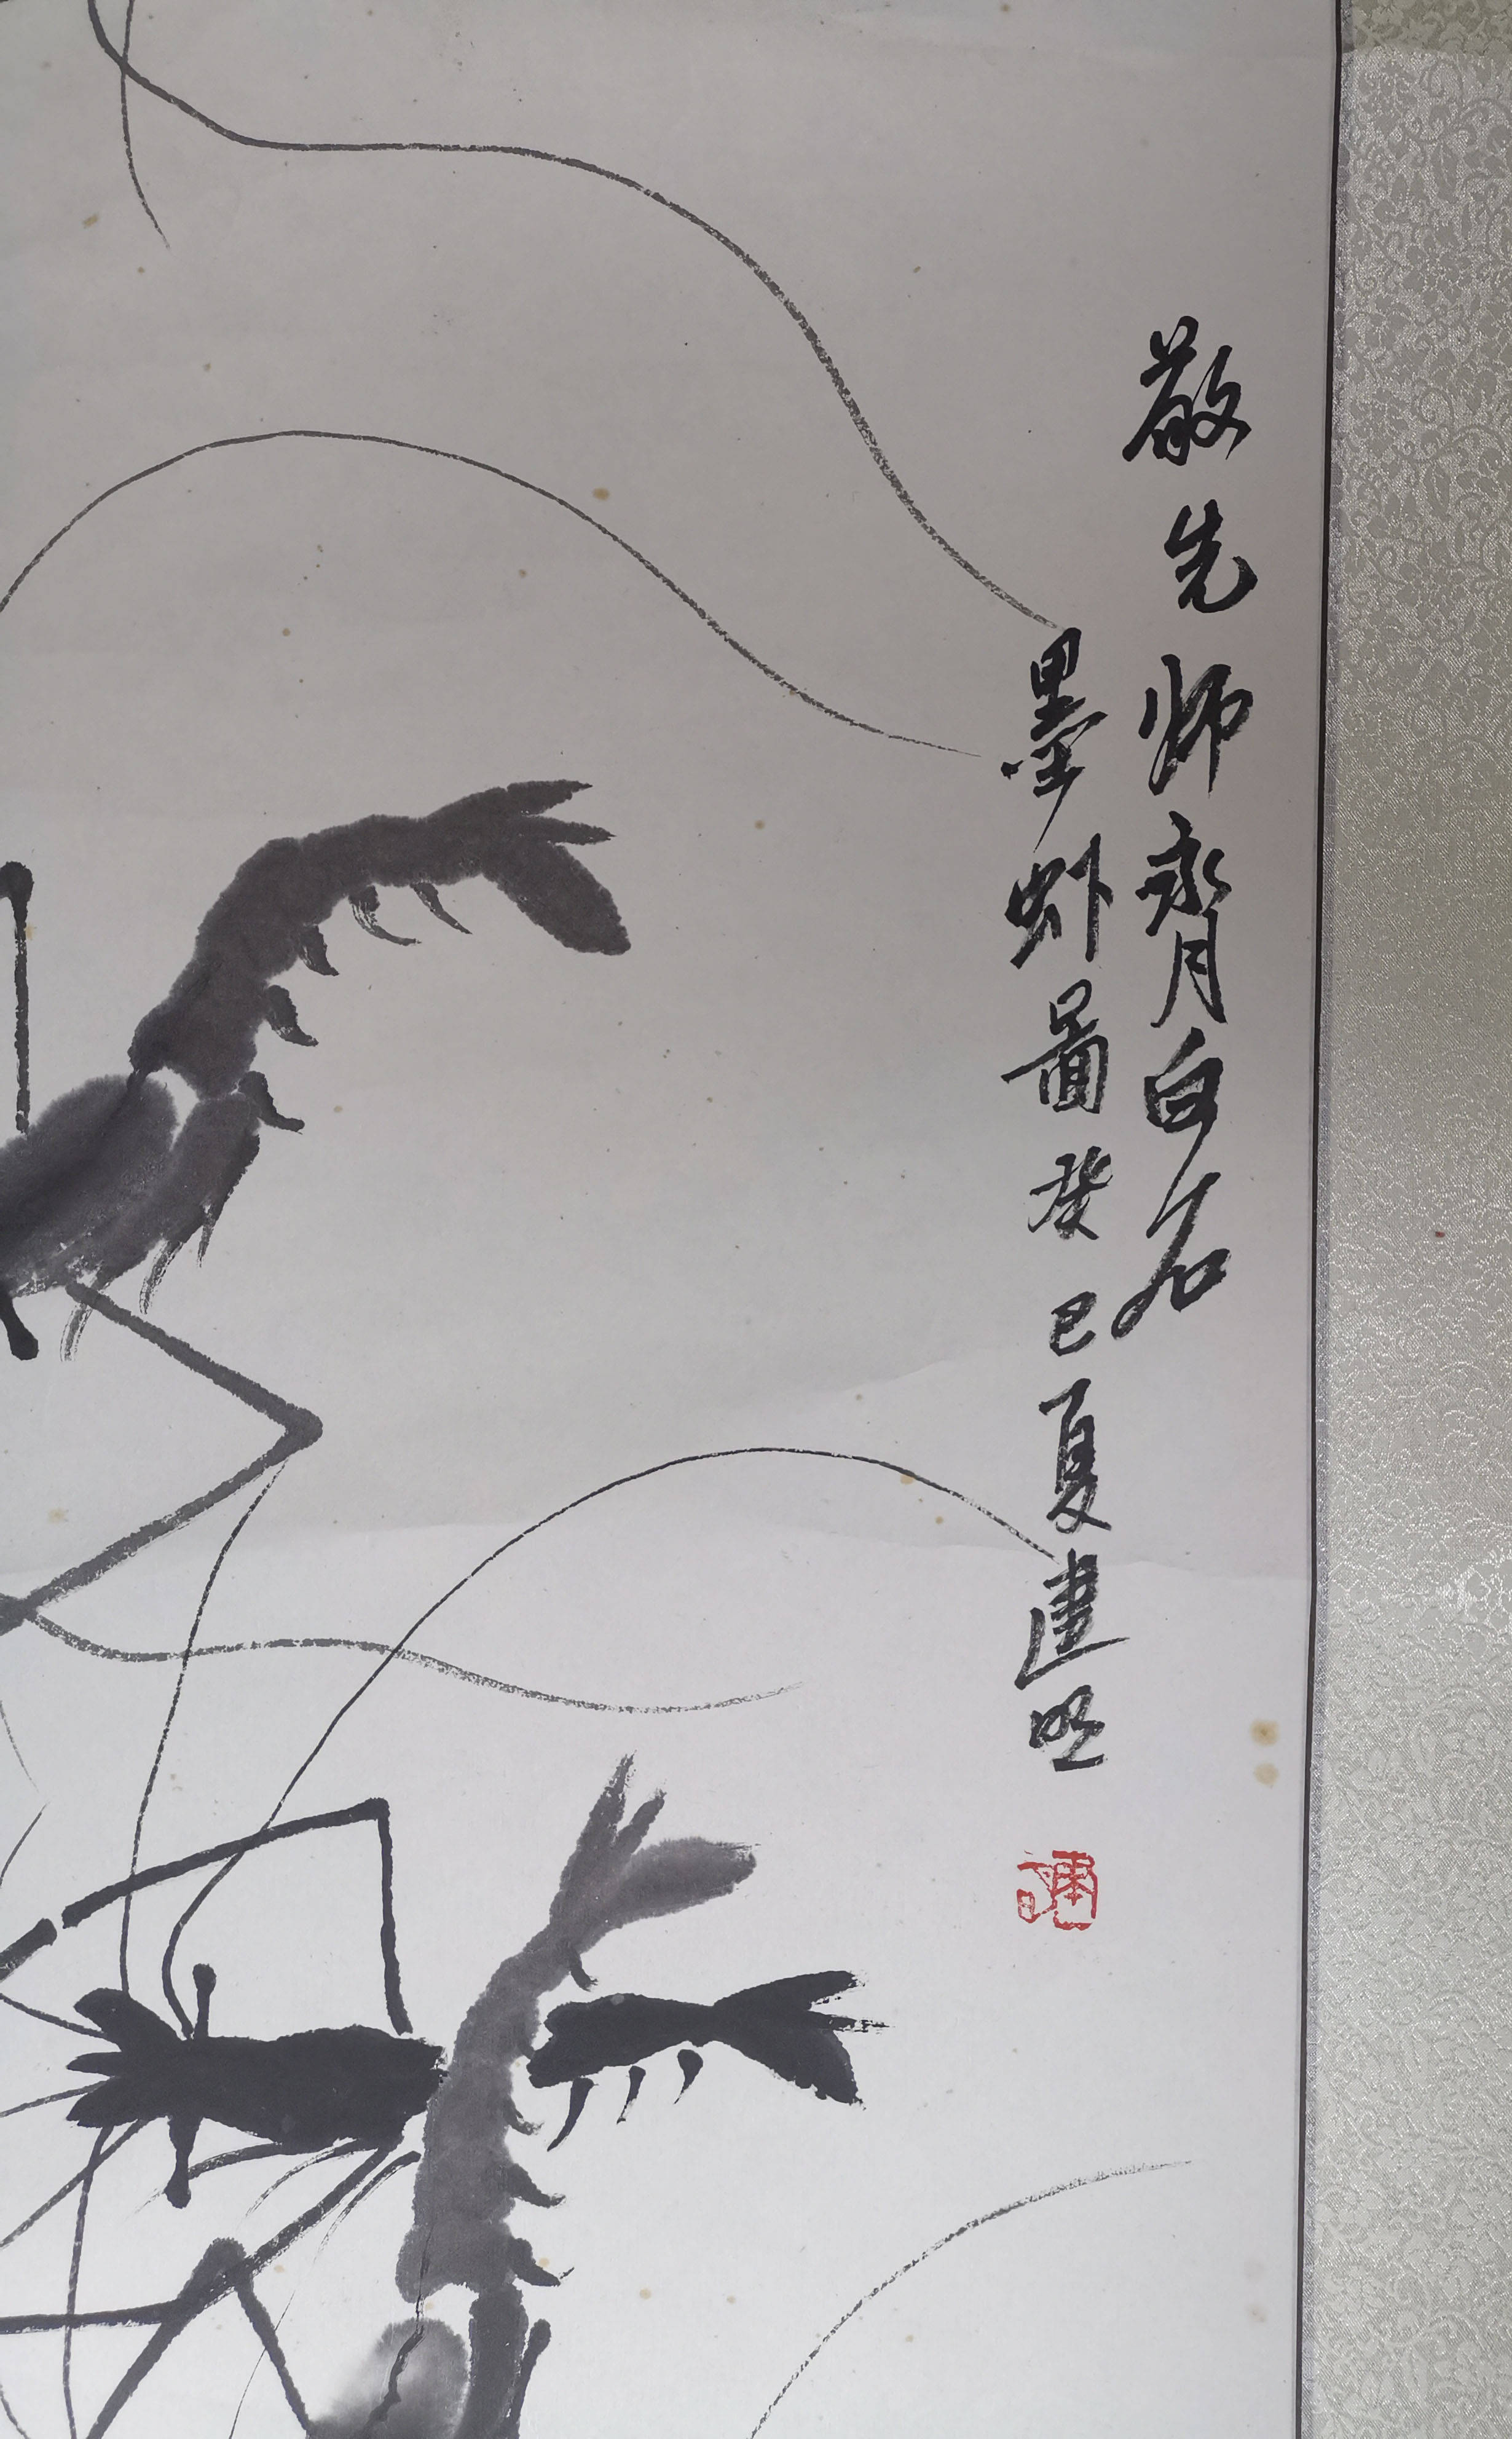 敬先师齐白石
墨虾图癸巳夏建明